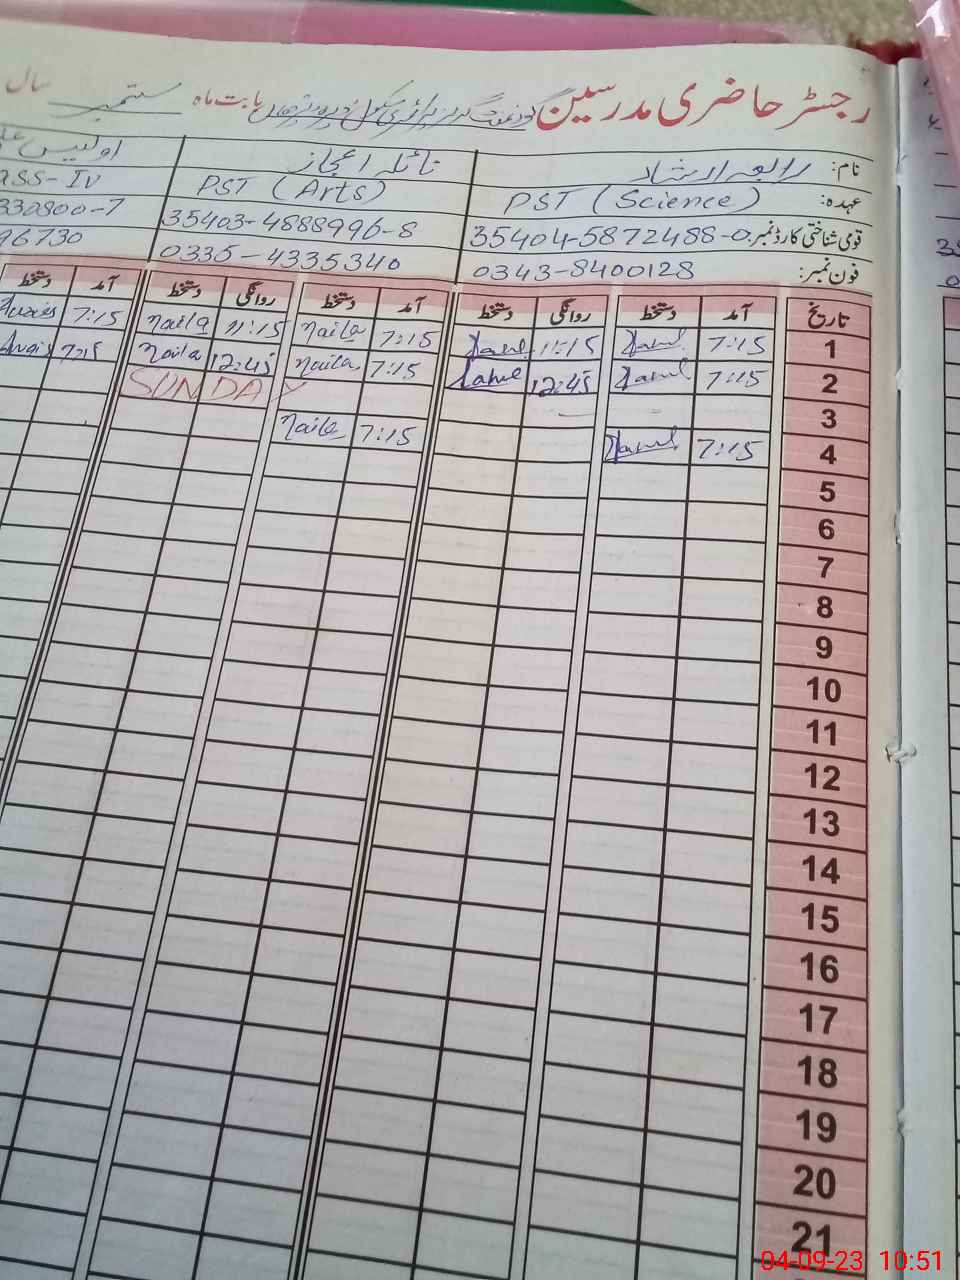 رجسٹر حاضری مدرسین گورنمنٹ گرلز پرائمری سکول بابت ماہ ستمبر سال
نام: رابعہ ارشاد نائلہ اعجاز اویس
عہدہ: PST (Science) PST (Arts) ASS-IV
قومی شناختی کارڈ نمبر: 35404-5872488-0 35403-4888996-8 330800-7
فون نمبر: 0343-8400128 0335-4335340 96730
تاریخ آمد دستخط روانگی دستخط آمد دستخط روانگی دستخط آمد دستخط
1 7:15 11:15 7:15 Naila 11:15 Naila 7:15
2 7:15 12:45 7:15 Naila 12:45 Naila 7:15
3 SUNDAY
4 7:15 7:15 Naila
5
6
7
8
9
10
11
12
13
14
15
16
17
18
19
20
21
04-09-23 10:51